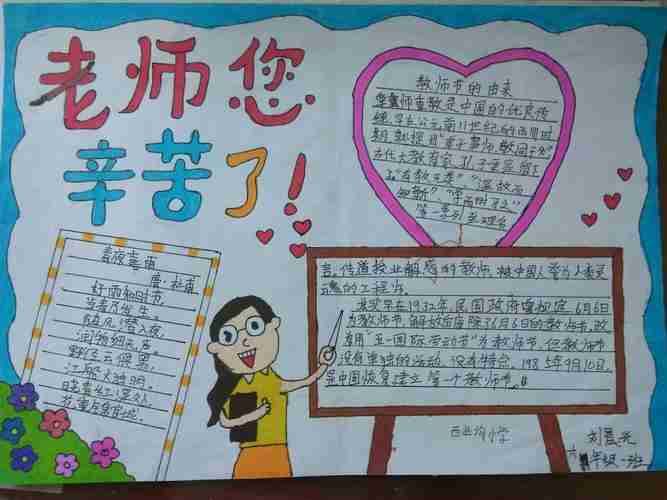 老师您
辛苦了!
教师节的由来
尊师重教是中国的优良传
统,早在公元前11世纪的西周时
期就提出"弟子事师,敬同于父"
古代大教育家孔子更是留下
了"有教无类","温故而
知新","学而时习之"
等一系列至理名
言,传道授业解惑的教师,被中国人誉为人类灵
魂的工程师。
其实早在1932年,民国政府曾规定6月6日
为教师节,解放后废除了6月6日的教师节,改
用"五一国际劳动节"为教师节,但教师节
没有单独的活动,没有特点。1985年9月10日,
是中国恢复建立第一个教师节。
春夜喜雨
唐·杜甫
好雨知时节,
当春乃发生。
随风潜入夜,
润物细无声。
野径云俱黑,
江船火独明。
晓看红湿处,
花重锦官城。
小学
六年级一班